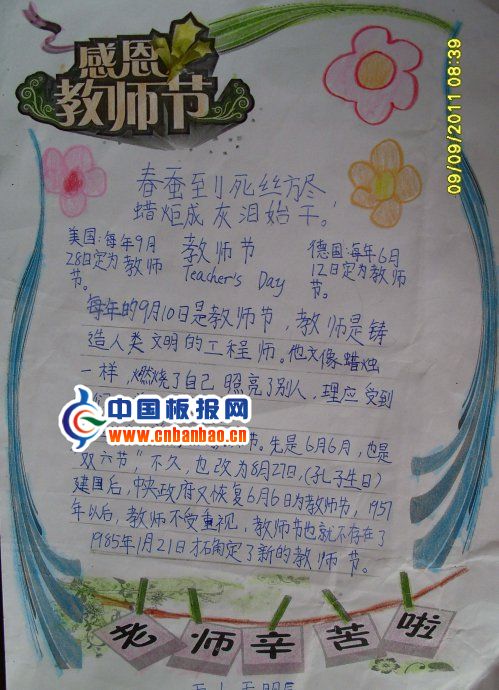 09/09/2011 08:39
感恩
教师节
春蚕到死丝方尽
蜡炬成灰泪始干!
美国:每年9月
28日定为教师
节。
教师节
Teacher's Day
德国:每年6月
12日定为教师
节。
每年的9月10日是教师节,教师是铸
造人类文明的工程师。他又像蜡烛
一样,燃烧了自己 照亮了别人,理应受到
中国板报网
www.cnbanbao.cn
节。先是6月6月,也是
双六节",不久,也改为8月27日,(孔子生日)
建国后,中央政府又恢复6月6日为教师节,1957
年以后,教师不受重视,教师节也就不存在了
1985年1月21日才确定了新的教师节。
老师辛苦啦